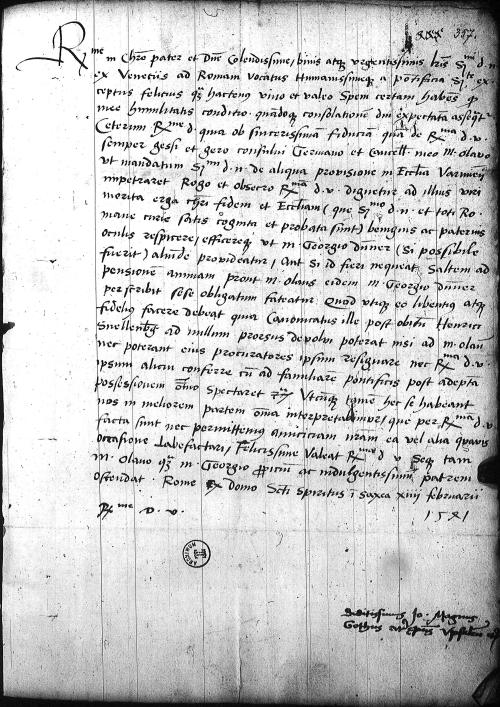 XXX 337.
R.me in Chro pater et Dne Colendissime, binis atq urgentissimis lris S.mi d. n.
ex Venetiis ad Romam vocatus Humanissimeq a pontificia S.te ex
ceptus felicius q hactenus vivo et valeo Spem certam habens q
mee humilitatis conditio quandoq consolationem expectata
Ceterum R.me d. qua ob sincerissimam fiduciam quā de R.ma d. v.
semper gessi et gero consului Germano et Cancell. meo m. olavo
ut mandatum S.mi d. n. de aliqua provisione in Ecclia Varmien
impetraret Rogo et obsecro R.ma d. v. dignetur ad illius viri
merita erga chri fidem et Eccliam (que S.mo d. n. et toti Ro-
mane curie satis cognita et probata sunt) benignis ac paternis
oculis respicere, efficereq ut m Georgio dinner (Si possibile
fuerit) aliunde provideatur, Aut Si id fieri nequeat Saltem ad
pensionem annuam prout m. olaus eidem m Georgio dinner
perscribit sese obligatum fateatur Quod utiq eo libentius atq
fidelius facere debeat quia Canonicatus ille post obitum Henrici
Snellenbg ad nullum prorsus devolvi poterat nisi ad m. olaum
nec poterant eius procuratores ipsum resignare nec R.ma d. v.
ipsum alicui conferre cum ad familiare pontificis post adepta
possessionem omnino Spectaret Utcunq tamen hec se habeant
nos in meliorem partem omnia interpretabimur, que per R.ma d. v
facta sunt nec permittemus amicitiam nram ea vel alia quavis
occasione Labefactari, Felicissime Valeat R.ma d. v. Seq tam
m. olavo q m. Georgio ac indulgentissimum patrem
ostendat Rome Ex domo Scti Spiritus i saxia xiiij februarii
R.me D. V. 1541
deditissimus Jo. Magnus
Gothus archieps Upsalen